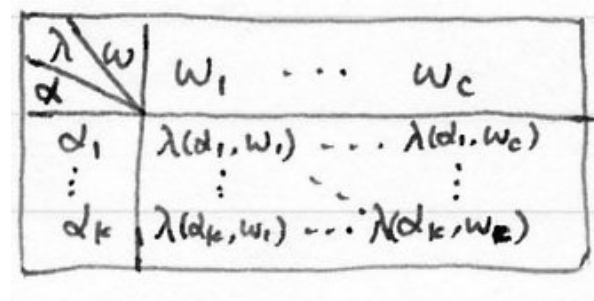 λ ω ω₁ ... ω_c
α
α₁ λ(α₁,ω₁) ... λ(α₁,ω_c)
⋮ ⋮ ⋱ ⋮
α_k λ(α_k,ω₁) ... λ(α_k,ω_c)